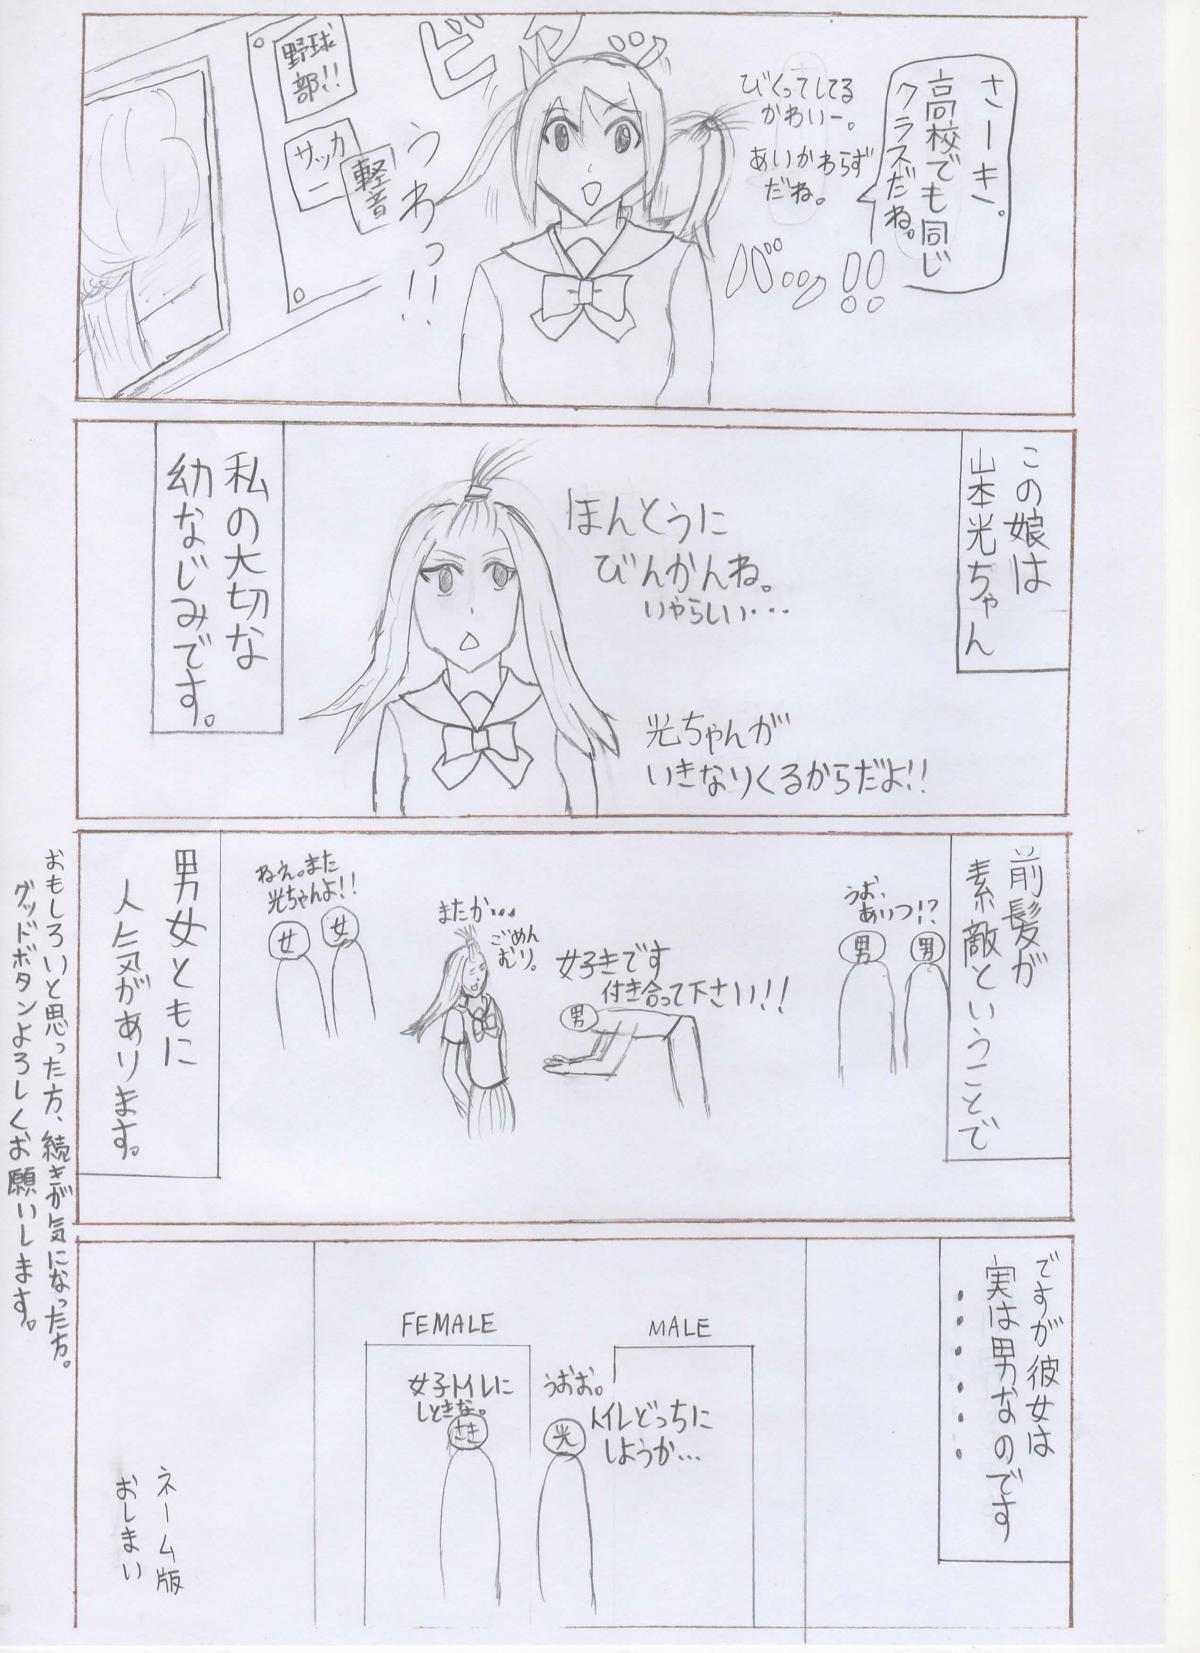 さーき。
高校でも同じ
クラスだね。
びくってしてる
かわいー。
あいかわらず
だね。
バッ!!
ビクッ
うわっ!!
野球
部!!
サッカ
ー
軽
音
この娘は
山本光ちゃん
ほんとうに
びんかんね。
いやらしい・・・
光ちゃんが
いきなりくるからだよ!!
私の大切な
幼なじみです。
前髪が
素敵ということで
うお、
ありつ!?
男
男
女子きです
付き合って下さい!!
男
またか・・・
ごめん
むり。
ねえ。また
光ちゃんよ!!
女
女
男女ともに
人気があります。
ですが彼女は
実は男なのです
・・・・・・
MALE
FEMALE
うおお。
トイレどっちに
しようか・・・
光
女子トイレに
しときな。
さき
ネーム版
おしまい
おもしろいと思った方、続きが気になった方。
グッドボタンよろしくお願いします。